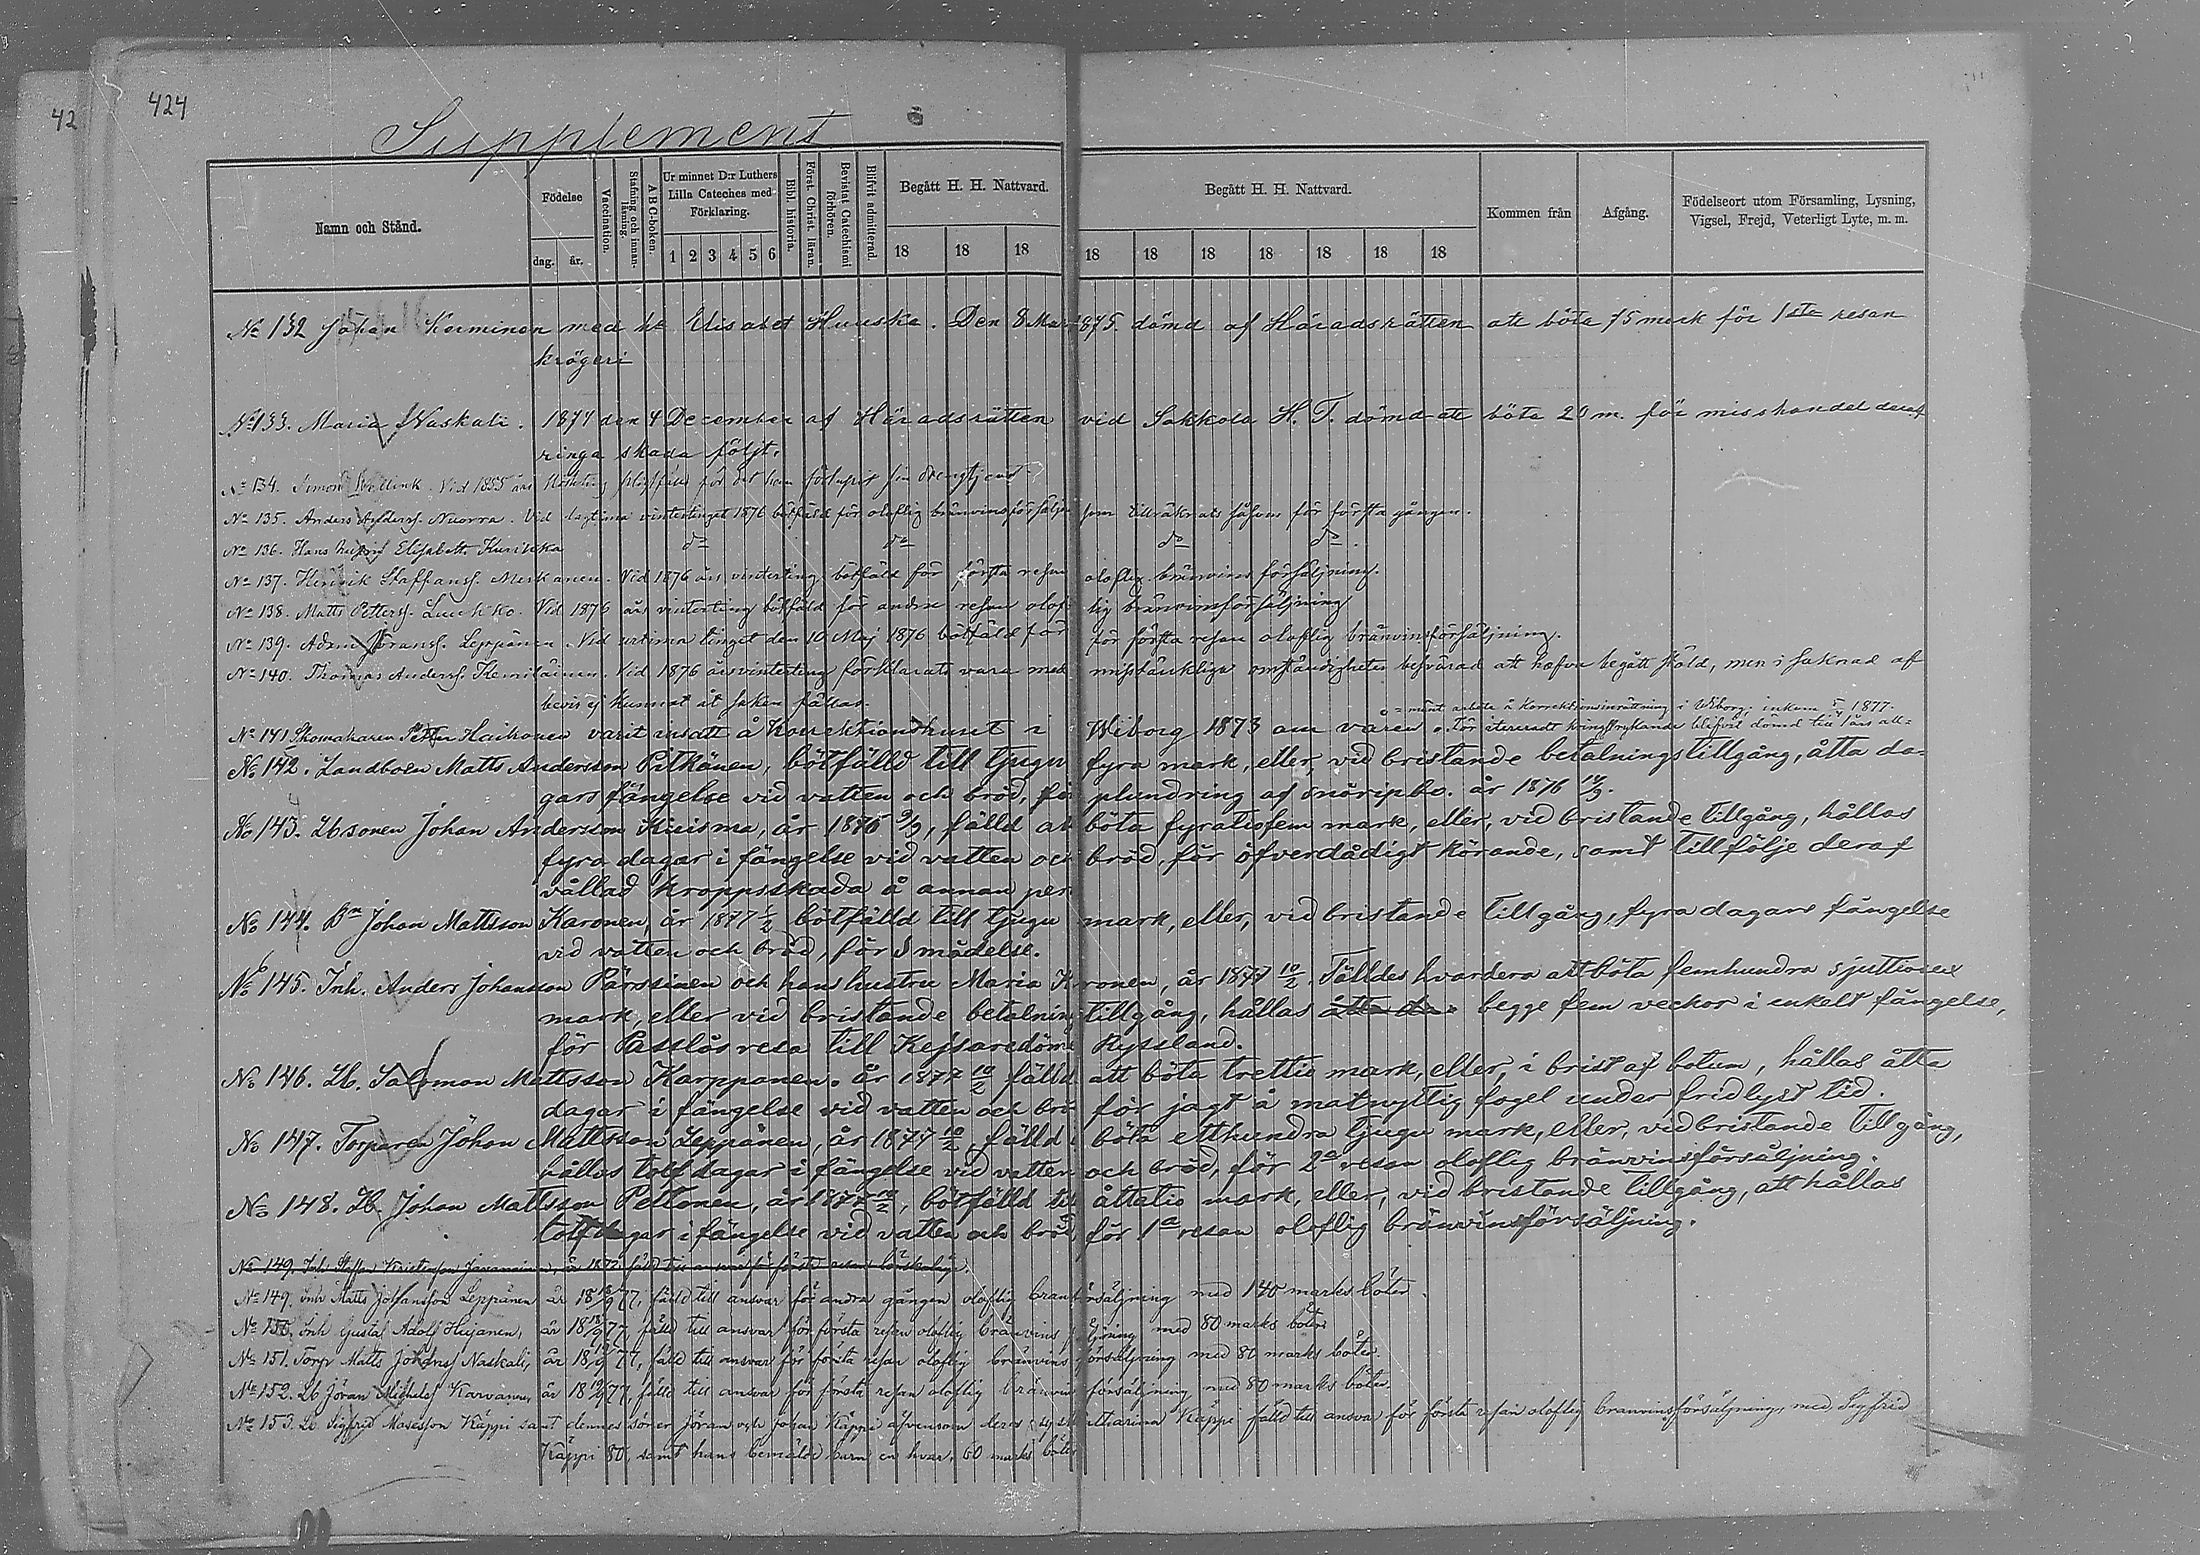 42
424
Supplement
Namn och Stånd.
Födelse
dag. år.
Vaccination.
Stafning och innan-läsning.
ABC-boken.
Ur minnet D:r Luthers Lilla Cateches med Förklaring.
1 2 3 4 5 6
Bibl. historia.
Först. Christ. läran.
Bevistat Catechismi förhören.
Blifvit admitterad.
Begått H. H. Nattvard.
18 18 18
Begått H. H. Nattvard.
18 18 18 18 18 18 18
Kommen från
Afgång.
Födelseort utom Församling, Lysning, Vigsel, Frejd, Veterligt Lyte, m. m.
No 132 Johan Korminen med Elisabet Huuska. Den 8 Mars 1875 dömd af Häradsrätten att böta 75 mark för 1sta resan
krögeri
No 133. Maria Naskali. 1877 den 4 December af Häradsrätten vid Sakkola H. T. dömd att böta 20 m. för misshandel deraf
ringa skada följt.
No 134. Simon Vid 1855 års för det han förlupit sin drengtjenst.
No 135. Anders Anderss. Nuorra. Vid lagtima vintertinget 1876 bötfäld för oloflig bränvinsförsäljn som tillräknats såsom för första gången.
No 136. Hans hustru Elisabeth do do do do.
No 137. Henrik Staffanss. Meskanen. Vid 1876 års vinterting bötfäld för första resan oloflig bränvins försäljning.
No 138. Matts Petterss. Luukko. Vid 1876 års vinterting bötfäld för andra resan olof lig bränvinsförsäljning
No 139. Adam Göranss. Leppänen. Vid urtima tinget den 10 Maj 1876 bötfäld för för första resan oloflig bränvinsförsäljning.
No 140. Thomas Anderss. Kemiläinen. Vid 1876 års vinterting förklarats vara med misstänkliga omständigheter besvärad att hafva begått stöld, men i saknad af
bevis ej kunnat åt saken fällas.
månt. arbete å Korrektionsinrättning i Wiborg; inkom 1877.
No 141 Skomakaren Petter Haikonen varit insatt å Korrektionshuset i Wiborg 1873 om våren. För itereradt kringstrykande blifvit dömd till 1 års all=
No 142. Landboen Matts Andersson Pitkänen, bötfälld till tjugu fyra mark, eller, vid bristande betalningstillgång, åtta da=
gars fängelse vid vatten och bröd, för plundring af snöripbo. år 1876 14/3.
No 143. Lbsonen Johan Andersson Kuisma, år 1876 9/9, fälld att böta fyratiofem mark, eller, vid bristande tillgång, hållas
fyra dagar i fängelse vid vatten och bröd, för öfverdådigt körande, samt till följe deraf
vållad kroppsskada å annan per
No 144. Bn Johan Mattsson Karonen, år 1877 bötfälld till tjugu mark, eller, vid bristande tillgång, fyra dagars fängelse
vid vatten och bröd, för smädelse.
No 145. Inh. Anders Johansson Pärssinen och hans hustru Maria Karonen, år 1877 10/2, Fälldes hvardera att böta femhundra sjuttiosex
mark, eller vid bristande betalning tillgång, hållas åtta da begge fem veckor i enkelt fängelse,
för Passlös resa till Kejsaredömet Ryssland.
No 146. Lb. Salomon Mattsson Karppanen. år 1877 10/2 fälld att böta trettio mark, eller, i brist af botum, hållas åtta
dagar i fängelse vid vatten och bröd för jagt å matnyttig fogel under fridlyst tid.
No 147. Torparen Johan Mattsson Leppänen, år 1877 10/2, fälld böta etthundra tjugu mark, eller, vid bristande tillgång,
hållas tolf dagar i fängelse vid vatten och bröd, för 2a resan oloflig bränvinsförsäljning.
No 148. Lb. Johan Mattsson Peltonen, år 1877 10/2, bötfälld till åttatio mark, eller, vid bristande tillgång, att hållas
tolf dagar i fängelse vid vatten och bröd för 1a resan oloflig bränvinsförsäljning.
No 149. Inh. Staffan Kristersson år 1877 fälld till ansvar för första resan
No 149. Inh Matts Johansson Leppänen år 18 77, fälld till ansvar för andra gången oloflig bränvinsförsäljning med 140 marks böter.
No 150. Inh Gustaf Adolf Hujanen, år 18 77, fälld till ansvar för första resan oloflig bränvins säljning med 80 marks böter
No 151. Torp Matts Johanss Naskali, år 18 77, fälld till ansvar för första resan oloflig bränvins försäljning med 80 marks böter
No 152. Lb Jöran Michelss Karvanen, år 18 77, fälld till ansvar för första resan oloflig bränvin försäljning med 80 marks böter.
No 153. Lb Sigfrid Mosesson Käppi samt dennes söner Jöran och Johan Käppi äfvensom deras syster Käppi fälld till ansvar för första resan oloflig bränvinsförsäljning, med Sigfrid
Käppi 80, samt hans bemälda barn en hvar, 60 marks böter